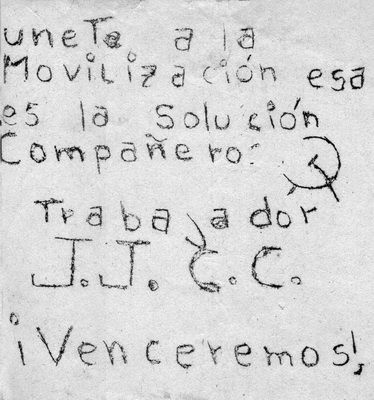 uneTe a la
MoviLización esa
es la Solución
Compañero:
Trabajador
J.J. C.C.
¡Venceremos!,